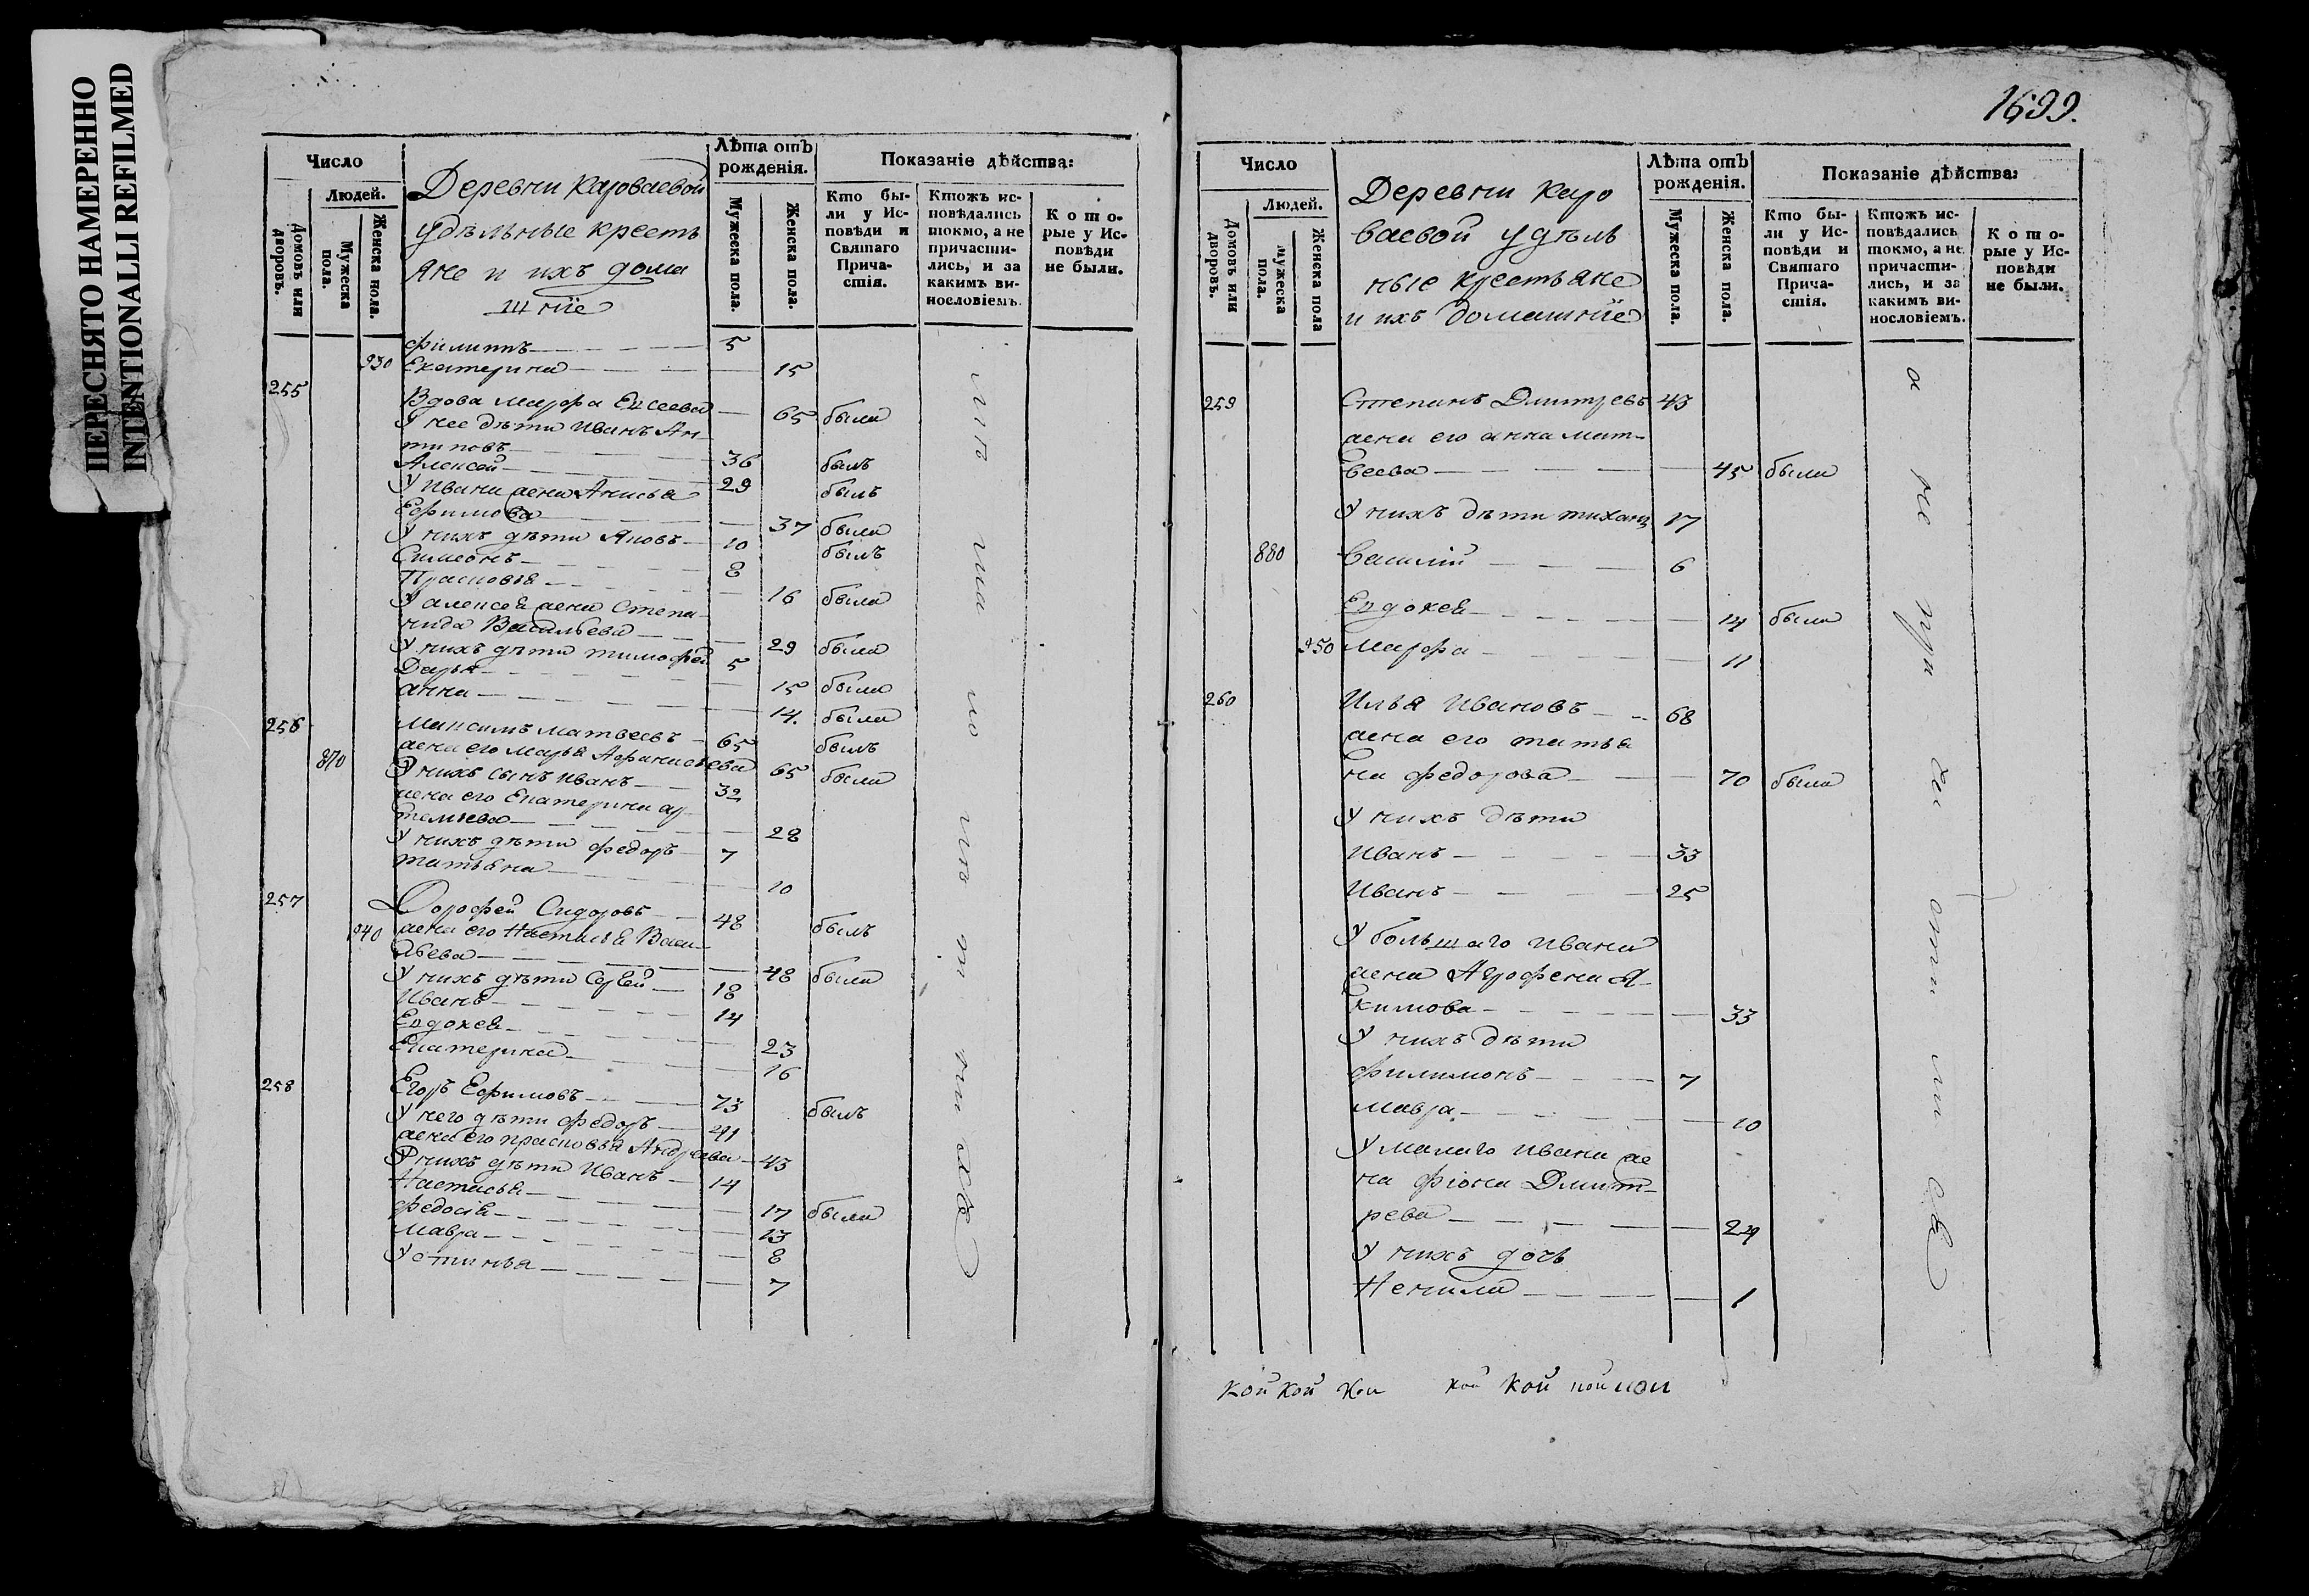 ПЕРЕСНЯТО НАМЕРЕННО
INTENTIONALLI REFILMED
Число
Людей.
Домовъ или дворовъ.
Мужеска пола.
Женска пола.
Деревни Кароваевой
удѣльные кресть
яне и ихъ дома
шніе
Лѣта отъ рожденія.
Мужеска пола.
Женска пола.
Показаніе дѣйства:
Кто бы-
ли у Ис-
повѣди и
Святаго
Прича-
стія.
Ктожъ ис-
повѣдались
токмо, а не
причасти-
лись, и за
какимъ ви-
нословіемъ.
Кото-
рые у Ис-
повѣди
не были.
Филиппъ 5
930 Екатерина 15
255 Вдова Марфа Евсеева 65 была
У нее дѣти Иванъ Ан-
типовъ 36 былъ
Алексей 29 былъ
У Ивана жена Анисья
Ефимова 37 была
У нихъ дѣти Яковъ 10 былъ
Симеонъ 8
Прасковья 16 была
У Алексея жена Степа-
нида Васильева 29 была
У нихъ дѣти Тимофей 5
Дарья 15 была
Анна 14. была
256 Максимъ Матвеевъ 65 былъ
жена его Марья Афанасьева 65 была
870 У нихъ сынъ Иванъ 32
жена его Екатерина Ар-
темьева 28
У нихъ дѣти Федоръ 7
Татьяна 10
257 Дорофей Сидоровъ 48 былъ
940 жена его Настасья Васи-
льева 48 была
У нихъ дѣти Сергей 18
Иванъ 14
Евдокея 23
Екатерина 16
258 Егоръ Ефимовъ 73 былъ
У него дѣти Федоръ 41
жена его Прасковья Андреева 43
У нихъ дѣти Иванъ 14
Настасья 17 была
Федосья 13
Мавра 8
Устинья 7
1699.
Число
Людей.
Домовъ или дворовъ.
Мужеска пола.
Женска пола
Деревни Каро
ваевой удѣль
ные крестьяне
и ихъ домашніе
Лѣта отъ рожденія.
Мужеска пола.
Женска пола.
Показаніе дѣйства:
Кто бы-
ли у Ис-
повѣди и
Святаго
Прича-
стія.
Ктожъ ис-
повѣдались
токмо, а не
причасти-
лись, и за
какимъ ви-
нословіемъ.
Кото-
рые у Ис-
повѣди
не были.
259 Степанъ Дмитревъ 43
жена его Анна Мат-
веева 45 была
У нихъ дѣти Тихонъ 17
880 Василій 6
Евдокея 14 была
950 Марфа 11
260 Илья Ивановъ 68
жена его Татья
на Федорова 70 была
У нихъ дѣти
Иванъ 33
Иванъ 25
У большаго Ивана
жена Агрофена Я-
кимова 33
У нихъ дѣти
Филимонъ 7
Мавра 10
У малаго Ивана же
на Фіона Дмит-
рева 24
У нихъ дочь
Ненила 1
а не при ча сти ли ся
кой кой кои кой кой кой кои